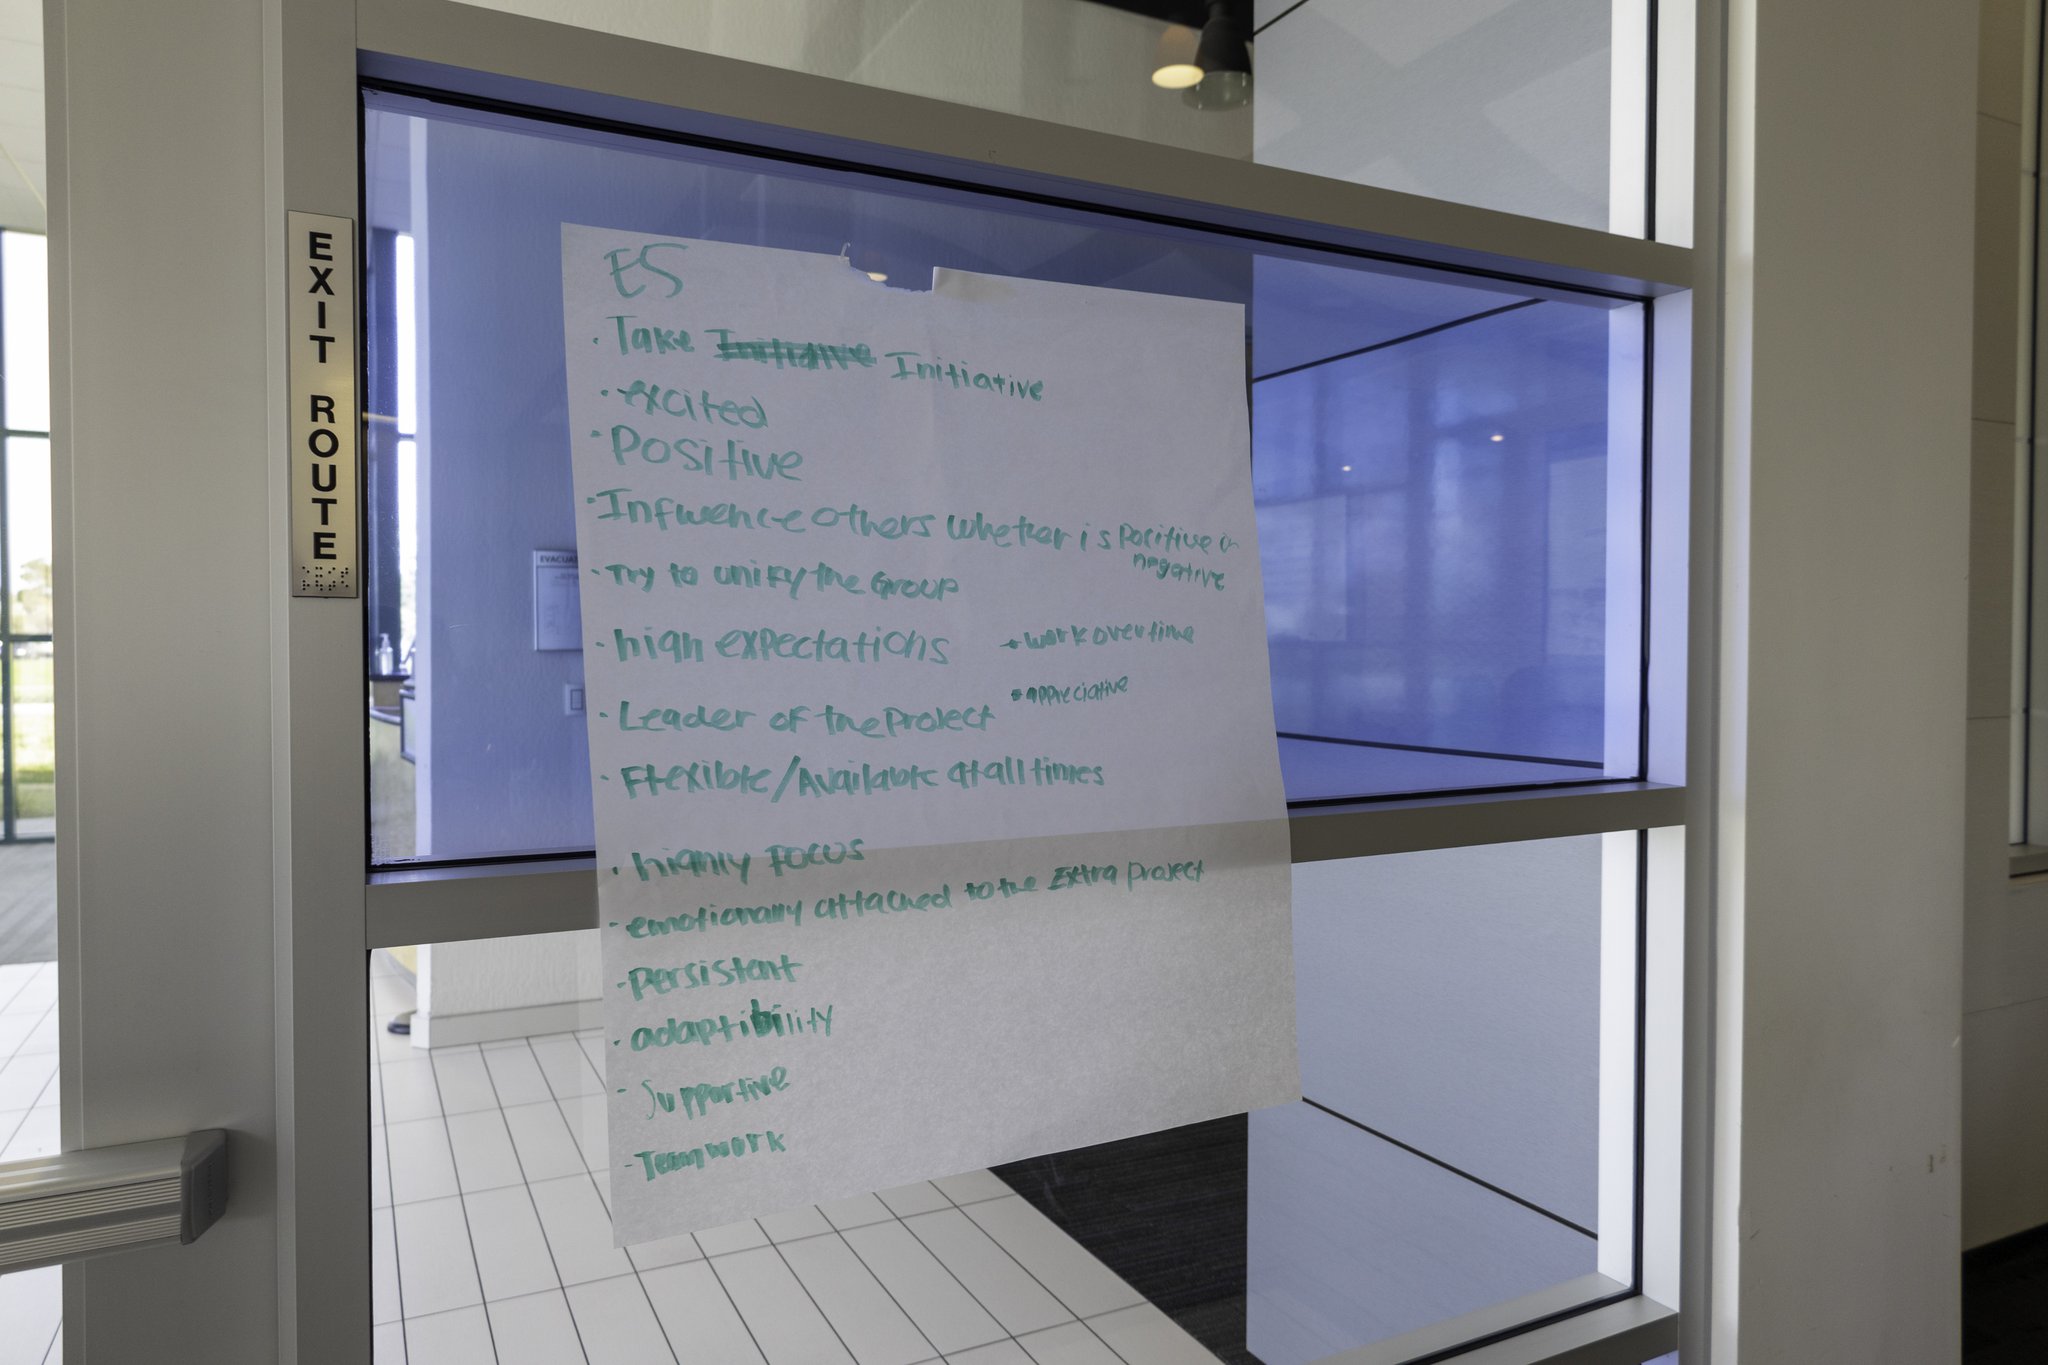 EXIT ROUTE
EVACUA
ES
· Take Initiative
· excited
· Positive
· Influence others whether is positive or
negative
· Try to unify the Group
· high expectations
· work overtime
· appreciative
· Leader of the Project
· Flexible/Available at all times
· highly Focus
· emotionally attached to the Extra Project
· Persistent
· adaptibility
- Supportive
- Teamwork